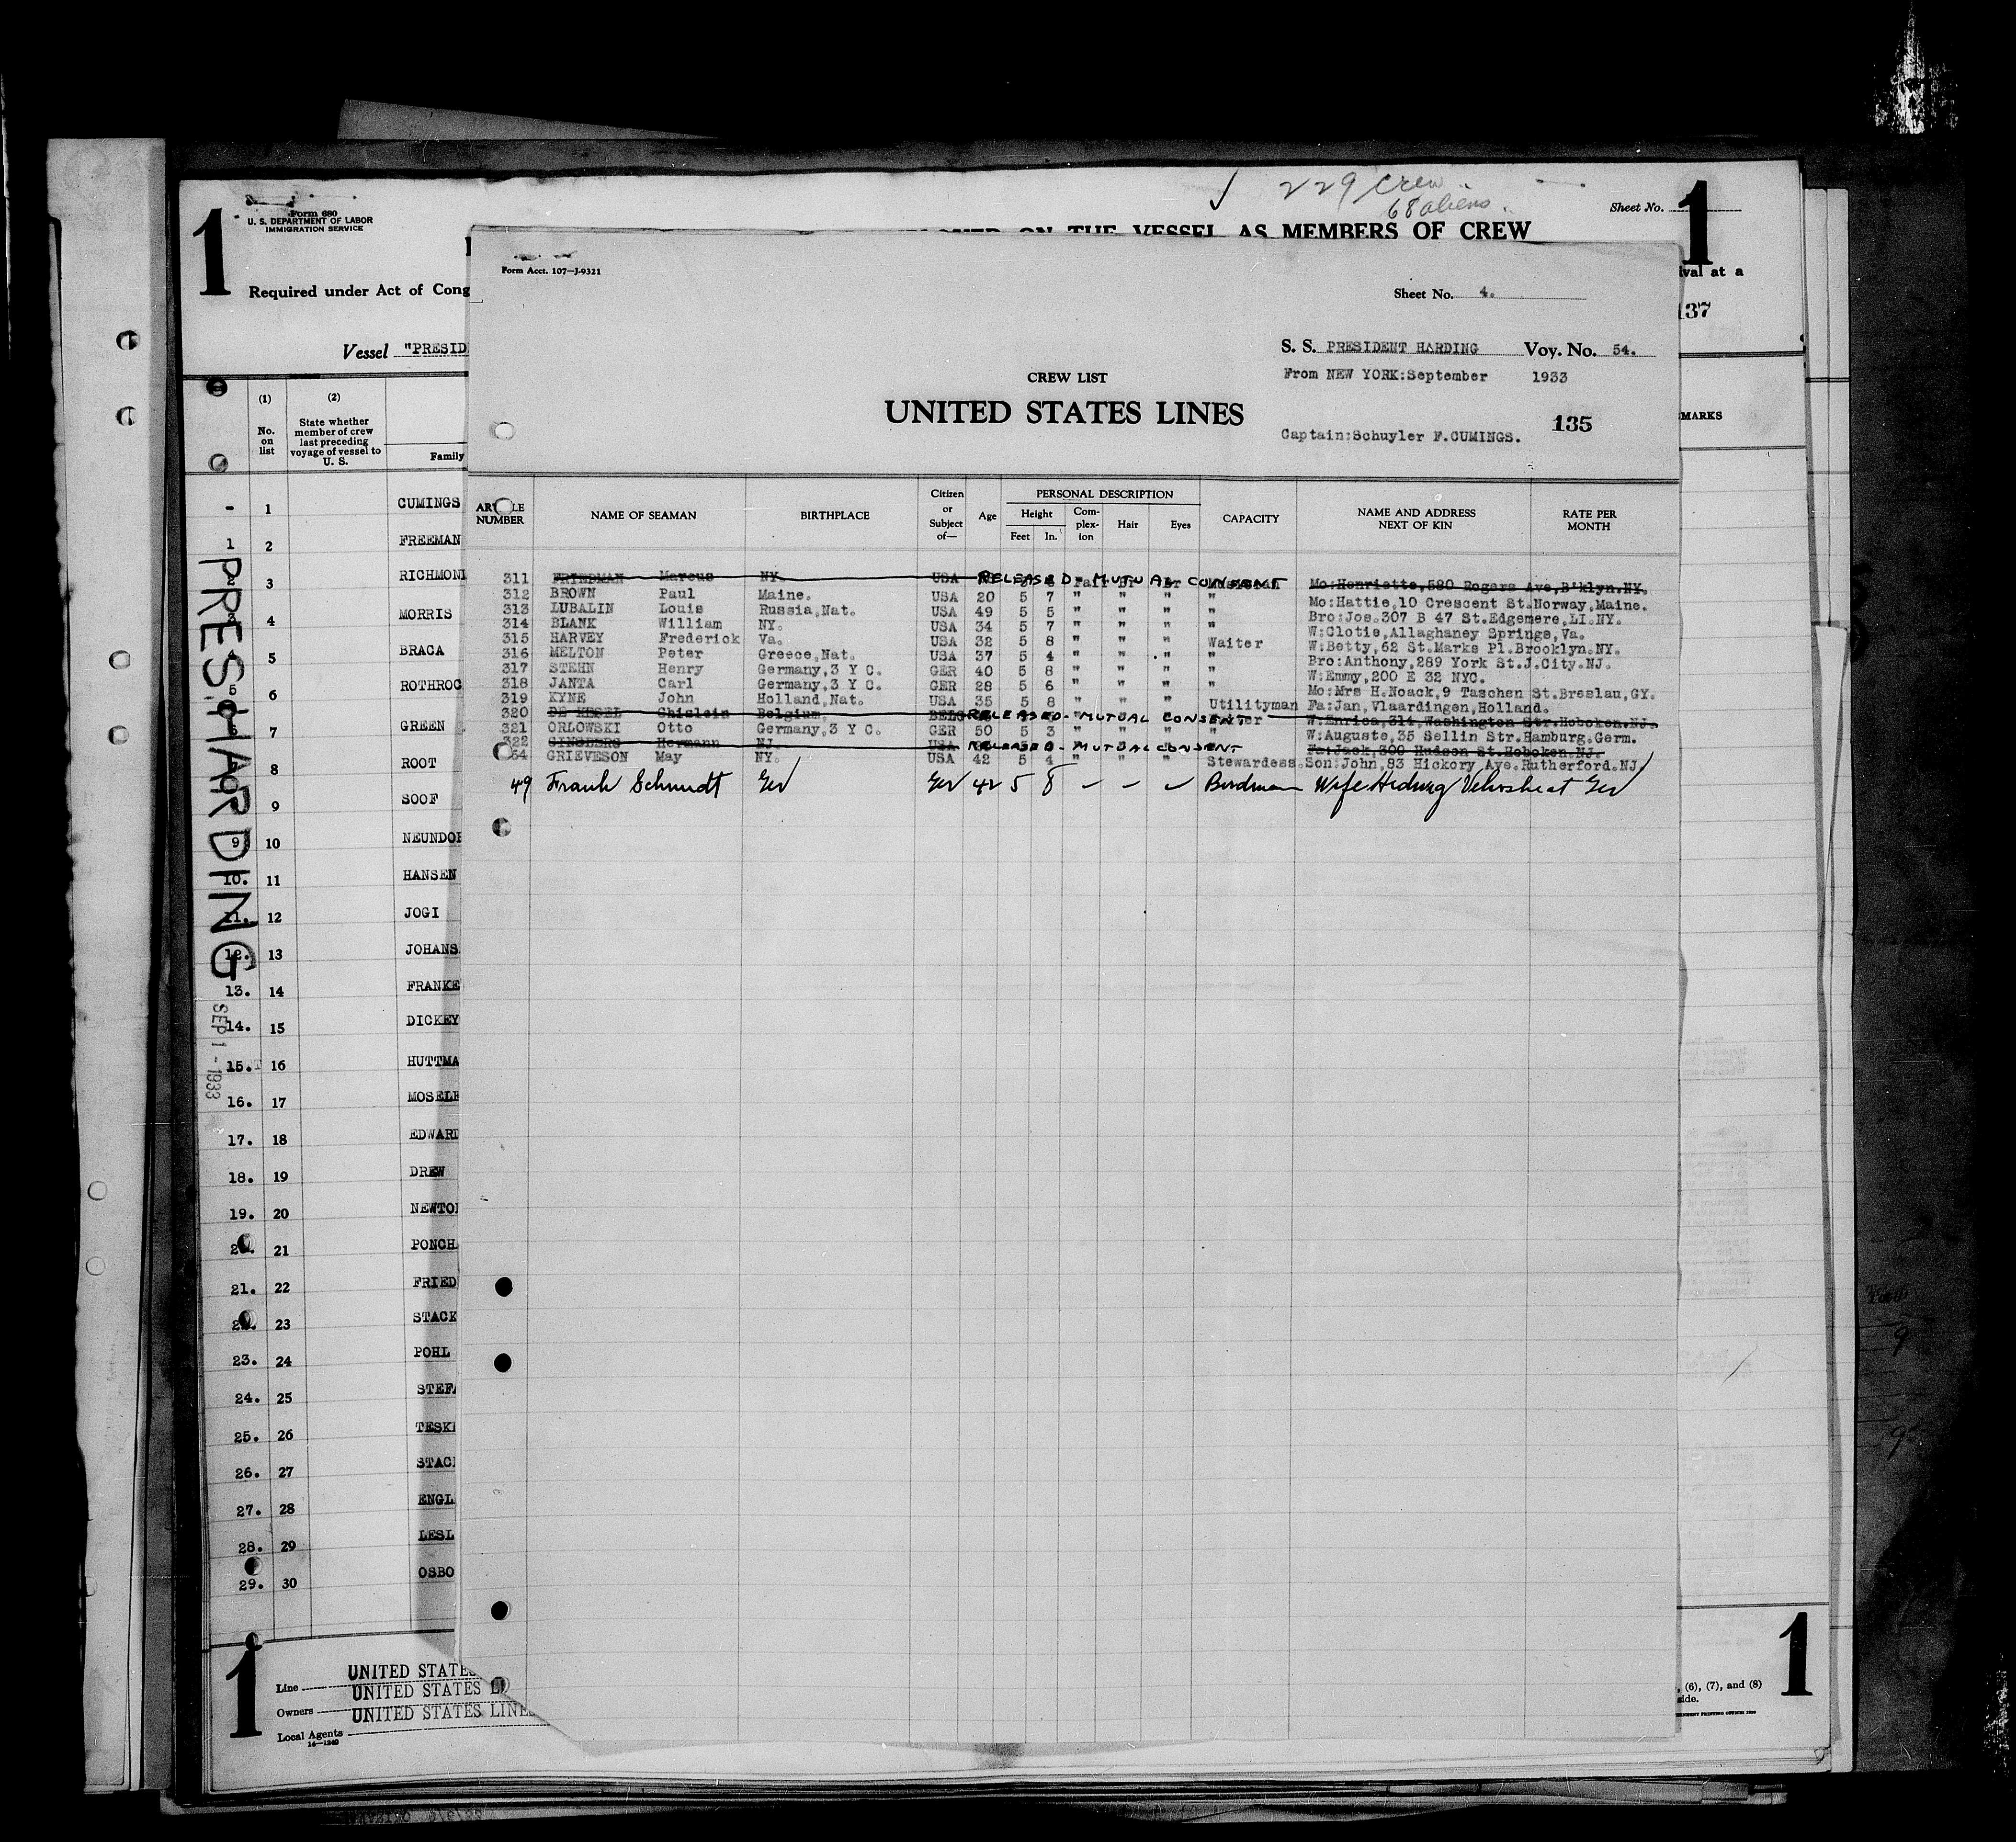 229 Crew
68 aliens
1
Form 680
U. S. DEPARTMENT OF LABOR
IMMIGRATION SERVICE
Sheet No.
1
ON THE VESSEL AS MEMBERS OF CREW
Required under Act of Cong
ival at a
137
Vessel "PRESID
MARKS
(1)
No.
on
list
(2)
State whether
member of crew
last preceding
voyage of vessel to
U. S.
Family
- 1 CUMINGS
1 2 FREEMAN
3 RICHMOND
4 MORRIS
5 BRACA
5 6 ROTHROC
7 GREEN
8 ROOT
9 SOOF
9 10 NEUNDOR
10. 11 HANSEN
11. 12 JOGI
12. 13 JOHANS
13. 14 FRANKE
14. 15 DICKEY
15. 16 HUTTMA
16. 17 MOSELE
17. 18 EDWARD
18. 19 DREW
19. 20 NEWTO
21 PONCH
21. 22 FRIED
23 STACK
23. 24 POHL
24. 25 STEFA
25. 26 TESK
26. 27 STAC
27. 28 ENGL
28. 29 LESL
29. 30 OSBO
PRES. HARDING
SEP 1 - 1933
Form Acct. 107—J-9321
Sheet No. 4.
S. S. PRESIDENT HARDING Voy. No. 54.
From NEW YORK:September 1933
CREW LIST
UNITED STATES LINES
135
Captain:Schuyler F.CUMINGS.
ARTICLE NUMBER NAME OF SEAMAN BIRTHPLACE Citizen or Subject of— Age PERSONAL DESCRIPTION Height Feet In. Complexion Hair Eyes CAPACITY NAME AND ADDRESS NEXT OF KIN RATE PER MONTH
311 FRIEDMAN Marcus NY. USA RELEASED - MUTUAL CONSENT Mo:Henriette,580 Rogers Ave,B'klyn.NY.
312 BROWN Paul Maine. USA 20 5 7 " " " " Mo:Hattie,10 Crescent St.Norway,Maine.
313 LUBALIN Louis Russia,Nat. USA 49 5 5 " " " " Bro:Jos.307 B 47 St.Edgemere,LI.NY.
314 BLANK William NY. USA 34 5 7 " " " " W:Clotie,Allaghaney Springs,Va.
315 HARVEY Frederick Va. USA 32 5 8 " " " Waiter W:Betty,62 St.Marks Pl.Brooklyn.NY.
316 MELTON Peter Greece,Nat. USA 37 5 4 " " " " Bro:Anthony,289 York St.J.City.NJ.
317 STEHN Henry Germany,3 Y C. GER 40 5 8 " " " " W:Emmy,200 E 32 NYC.
318 JANTA Carl Germany,3 Y C. GER 28 5 6 " " " " Mo:Mrs H.Noack,9 Taschen St.Breslau,GY.
319 KYNE John Holland,Nat. USA 35 5 8 " " " Utilityman Fa:Jan,Vlaardingen,Holland.
320 DE KESEL Ghislein Belgium, BELG RELEASED - MUTUAL CONSENT W:Enrica,314,Washington Str.Hoboken.NJ.
321 ORLOWSKI Otto Germany,3 Y C. GER 50 5 3 " " " " W:Auguste,35 Sellin Str.Hamburg.Germ.
322 GINSBERG Hermann NJ. USA RELEASED - MUTUAL CONSENT Fa:Jack,300 Hudson St.Hoboken.NJ.
64 GRIEVESON May NY. USA 42 5 4 " " " Stewardess.Son:John,83 Hickory Ave.Rutherford.NJ
49 Frank Schmidt Ger Ger 42 5 8 Wife Hedwig Ger
1
Line UNITED STATES
Owners UNITED STATES LI
Local Agents UNITED STATES LINE
14—1240
, (6), (7), and (8)
side.
1